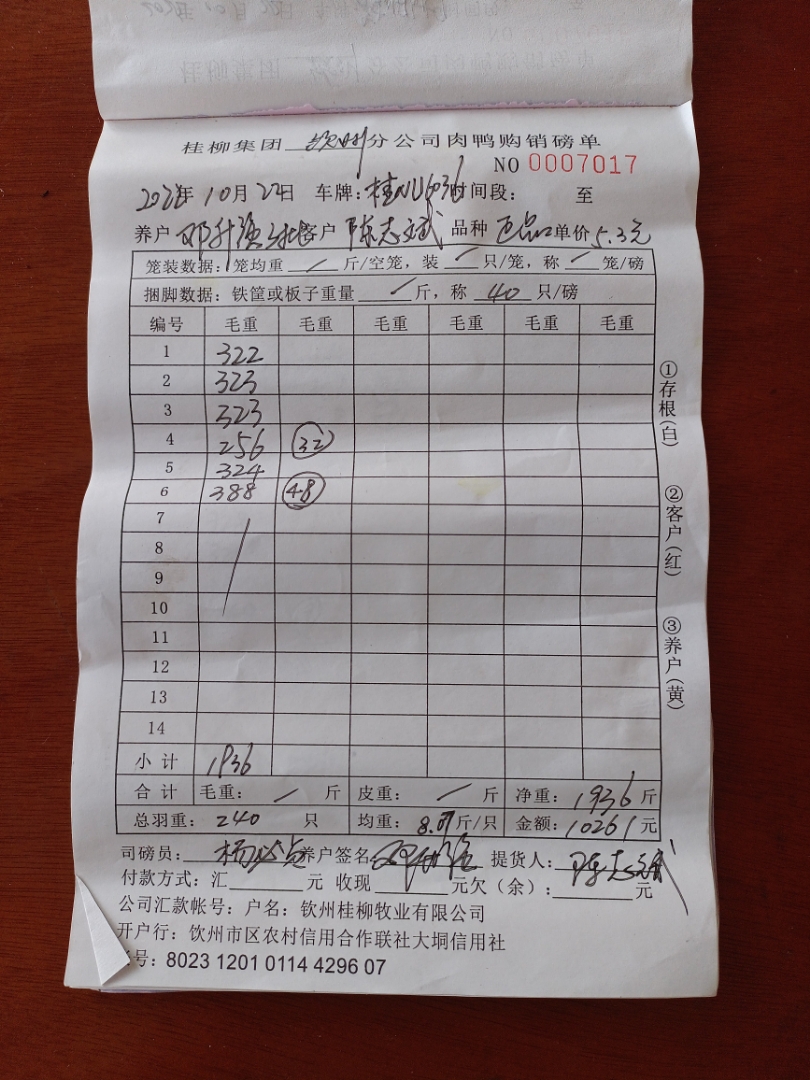 桂柳集团 钦州 分公司肉鸭购销磅单
NO 0007017
年10月22日 车牌: 时间段: 至
养户 客户 陈志斌 品种 正品 单价 5.3元
笼装数据: 笼均重 / 斤/空笼, 装 / 只/笼, 称 / 笼/磅
捆脚数据: 铁筐或板子重量 / 斤, 称 40 只/磅
编号 毛重 毛重 毛重 毛重 毛重 毛重
1 322
2 323
3 323
4 256 32
5 324
6 388 48
7
8
9
10
11
12
13
14
小计 1936
合计 毛重: / 斤 皮重: / 斤 净重: 1936 斤
总羽重: 240 只 均重: 8.07斤/只 金额: 10261 元
司磅员: 养户签名 提货人: 陈志斌
付款方式: 汇 元 收现 元欠(余): 元
公司汇款帐号: 户名: 钦州桂柳牧业有限公司
开户行: 钦州市区农村信用合作联社大垌信用社
号: 8023 1201 0114 4296 07
①存根(白)
②客户(红)
③养户(黄)